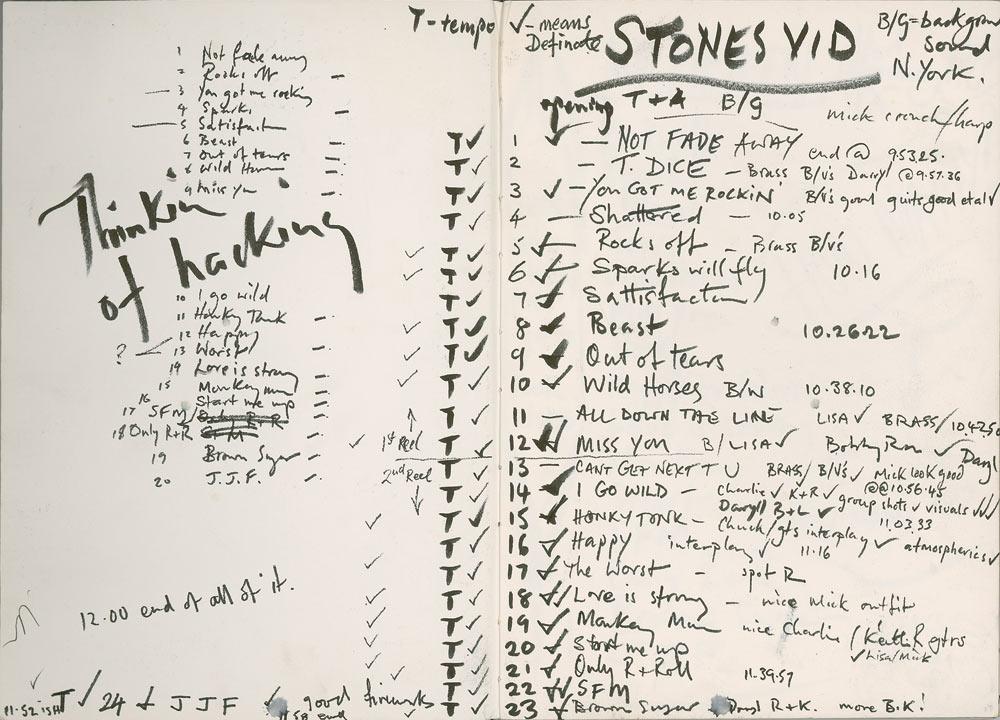 T-tempo
1 Not fade away
2 Rocks off
3 You got me rocking
4 Sparks
5 Satisfactn
6 Beast
7 Out of tears
8 Wild
9 Miss you
Thinkin
of hacking
10 I go wild
11 Honky Tonk
12 Happy
? 13 Worst
14 Love is strong
15 Monkey man
16 Start me up
17 SFM
18 Only R+R
19 Brown Sugar
20 J.J.F.
1st Reel
2nd Reel
12.00 end of all of it.
11.52 ish T ✓ 24 J J F good fireworks
11 58 end
✓ - means
Definate
STONES VID
B/G = backgroun
sound
N. York.
opening T+A B/G
mick crouch/harp
T ✓ 1 ✓ — NOT FADE AWAY end @ 9.53.25.
T ✓ 2 — T. DICE — Brass B/V's Darryl @ 9.57.36
T ✓ 3 ✓ — You GOT ME ROCKIN' B/V's good guits good etal ✓
T ✓ 4 — Shattered — 10.05
✓ T ✓ 5 ✓ Rocks off — Brass B/V's
✓ T ✓ 6 ✓ Sparks will fly 10.16
T ✓ 7 ✓ Sattisfaction
✓ T ✓ 8 ✓ Beast 10.26.22
✓ T ✓ 9 ✓ Out of tears
✓ T ✓ 10 ✓ Wild Horses B/W 10.38.10
T ✓ 11 — ALL DOWN THE LINE LISA ✓ BRASS/ 10.42.50
✓ T ✓ 12 ✓ MISS YOU B/LISA ✓ Bobby Ron ✓ Daryl
T ✓ 13 — CANT GET NEXT T U BRASS/ B/V's ✓ Mick look good
@@ 10.56.45
T ✓ 14 ✓ I GO WILD — Charlie ✓ K+R ✓ group shots ✓ visuals ✓✓✓
Daryll B+L ✓
11.03.33
✓ T ✓ 15 ✓ HONKY TONK — Chuck/gts interplay ✓ atmospherics ✓
T ✓ 16 ✓ Happy interplay ✓ 11.16
✓ T ✓ 17 ✓ The Worst — spot R
✓ T ✓ 18 ✓ Love is strong — nice Mick outfit
✓ T ✓ 19 ✓ Monkey Man nice Charlie / Keith R gtrs
✓ Lisa/Mick
✓ T ✓ 20 ✓ Start me up
✓ T ✓ 21 ✓ Only R+Roll 11.39.57
T ✓ 22 ✓ SFM
T ✓ 23 ✓ Brown Sugar Daryl R+K. more B.K!